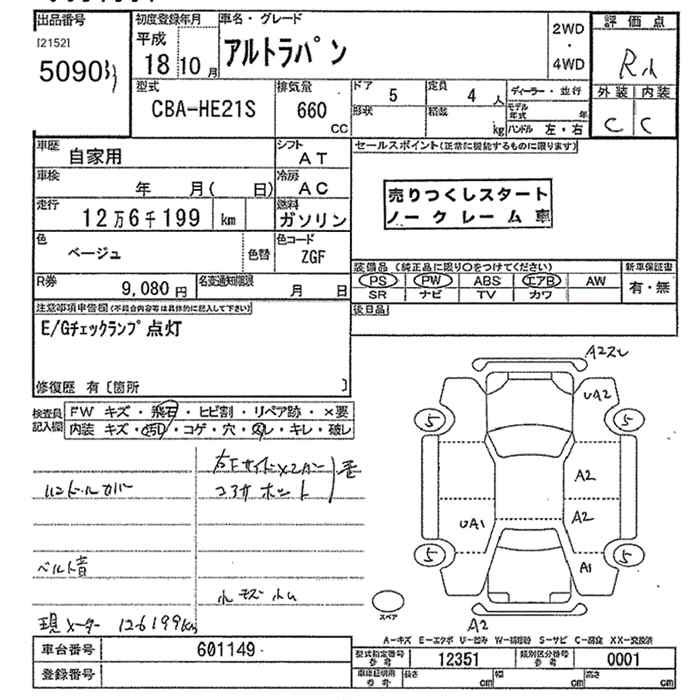 出品番号
[2152]
5090
初度登録年月
平成
18 10 月
車名・グレード
アルトラパン
2WD
・
4WD
評価点
外装 内装
C C
型式
CBA-HE21S
排気量
660
CC
ドア
5
定員
4 人
形状
積載
kg
ディーラー・並行
モデル年式 年
ハンドル 左・右
車歴
自家用
シフト
AT
セールスポイント(正常に機能するものに限ります)
車検
年 月( 日)
冷房
AC
売りつくしスタート
ノークレーム車
走行
12万6千199 km
燃料
ガソリン
色
ベージュ
色替
色コード
ZGF
装備品 (純正品に限り○をつけてください)
PS PW ABS エアB AW
SR ナビ TV カワ
新車保証書
有・無
R券
9,080 円
名変通知期限
月 日
後日品
注意事項申告欄(不具合内容等は具体的に記入して下さい)
E/Gチェックランプ点灯
修復歴 有〔箇所 〕
検査員記入欄
FW キズ・飛石・ヒビ割・リペア跡・×要
内装 キズ・汚れ・コゲ・穴・スレ・キレ・破レ
ハンドルカバー
ベルト音
現メーター 126199km
A2
UA2
5
5
A2
A2
UA1
5
5
A1
A2
スペア
A-キズ E-エクボ U-凹み W-補修跡 S-サビ C-腐食 XX-交換済
車台番号
601149
型式指定番号
参考
12351
類別区分番号
参考
0001
登録番号
車庫証明用
参考
長さ cm
幅 cm
高さ cm